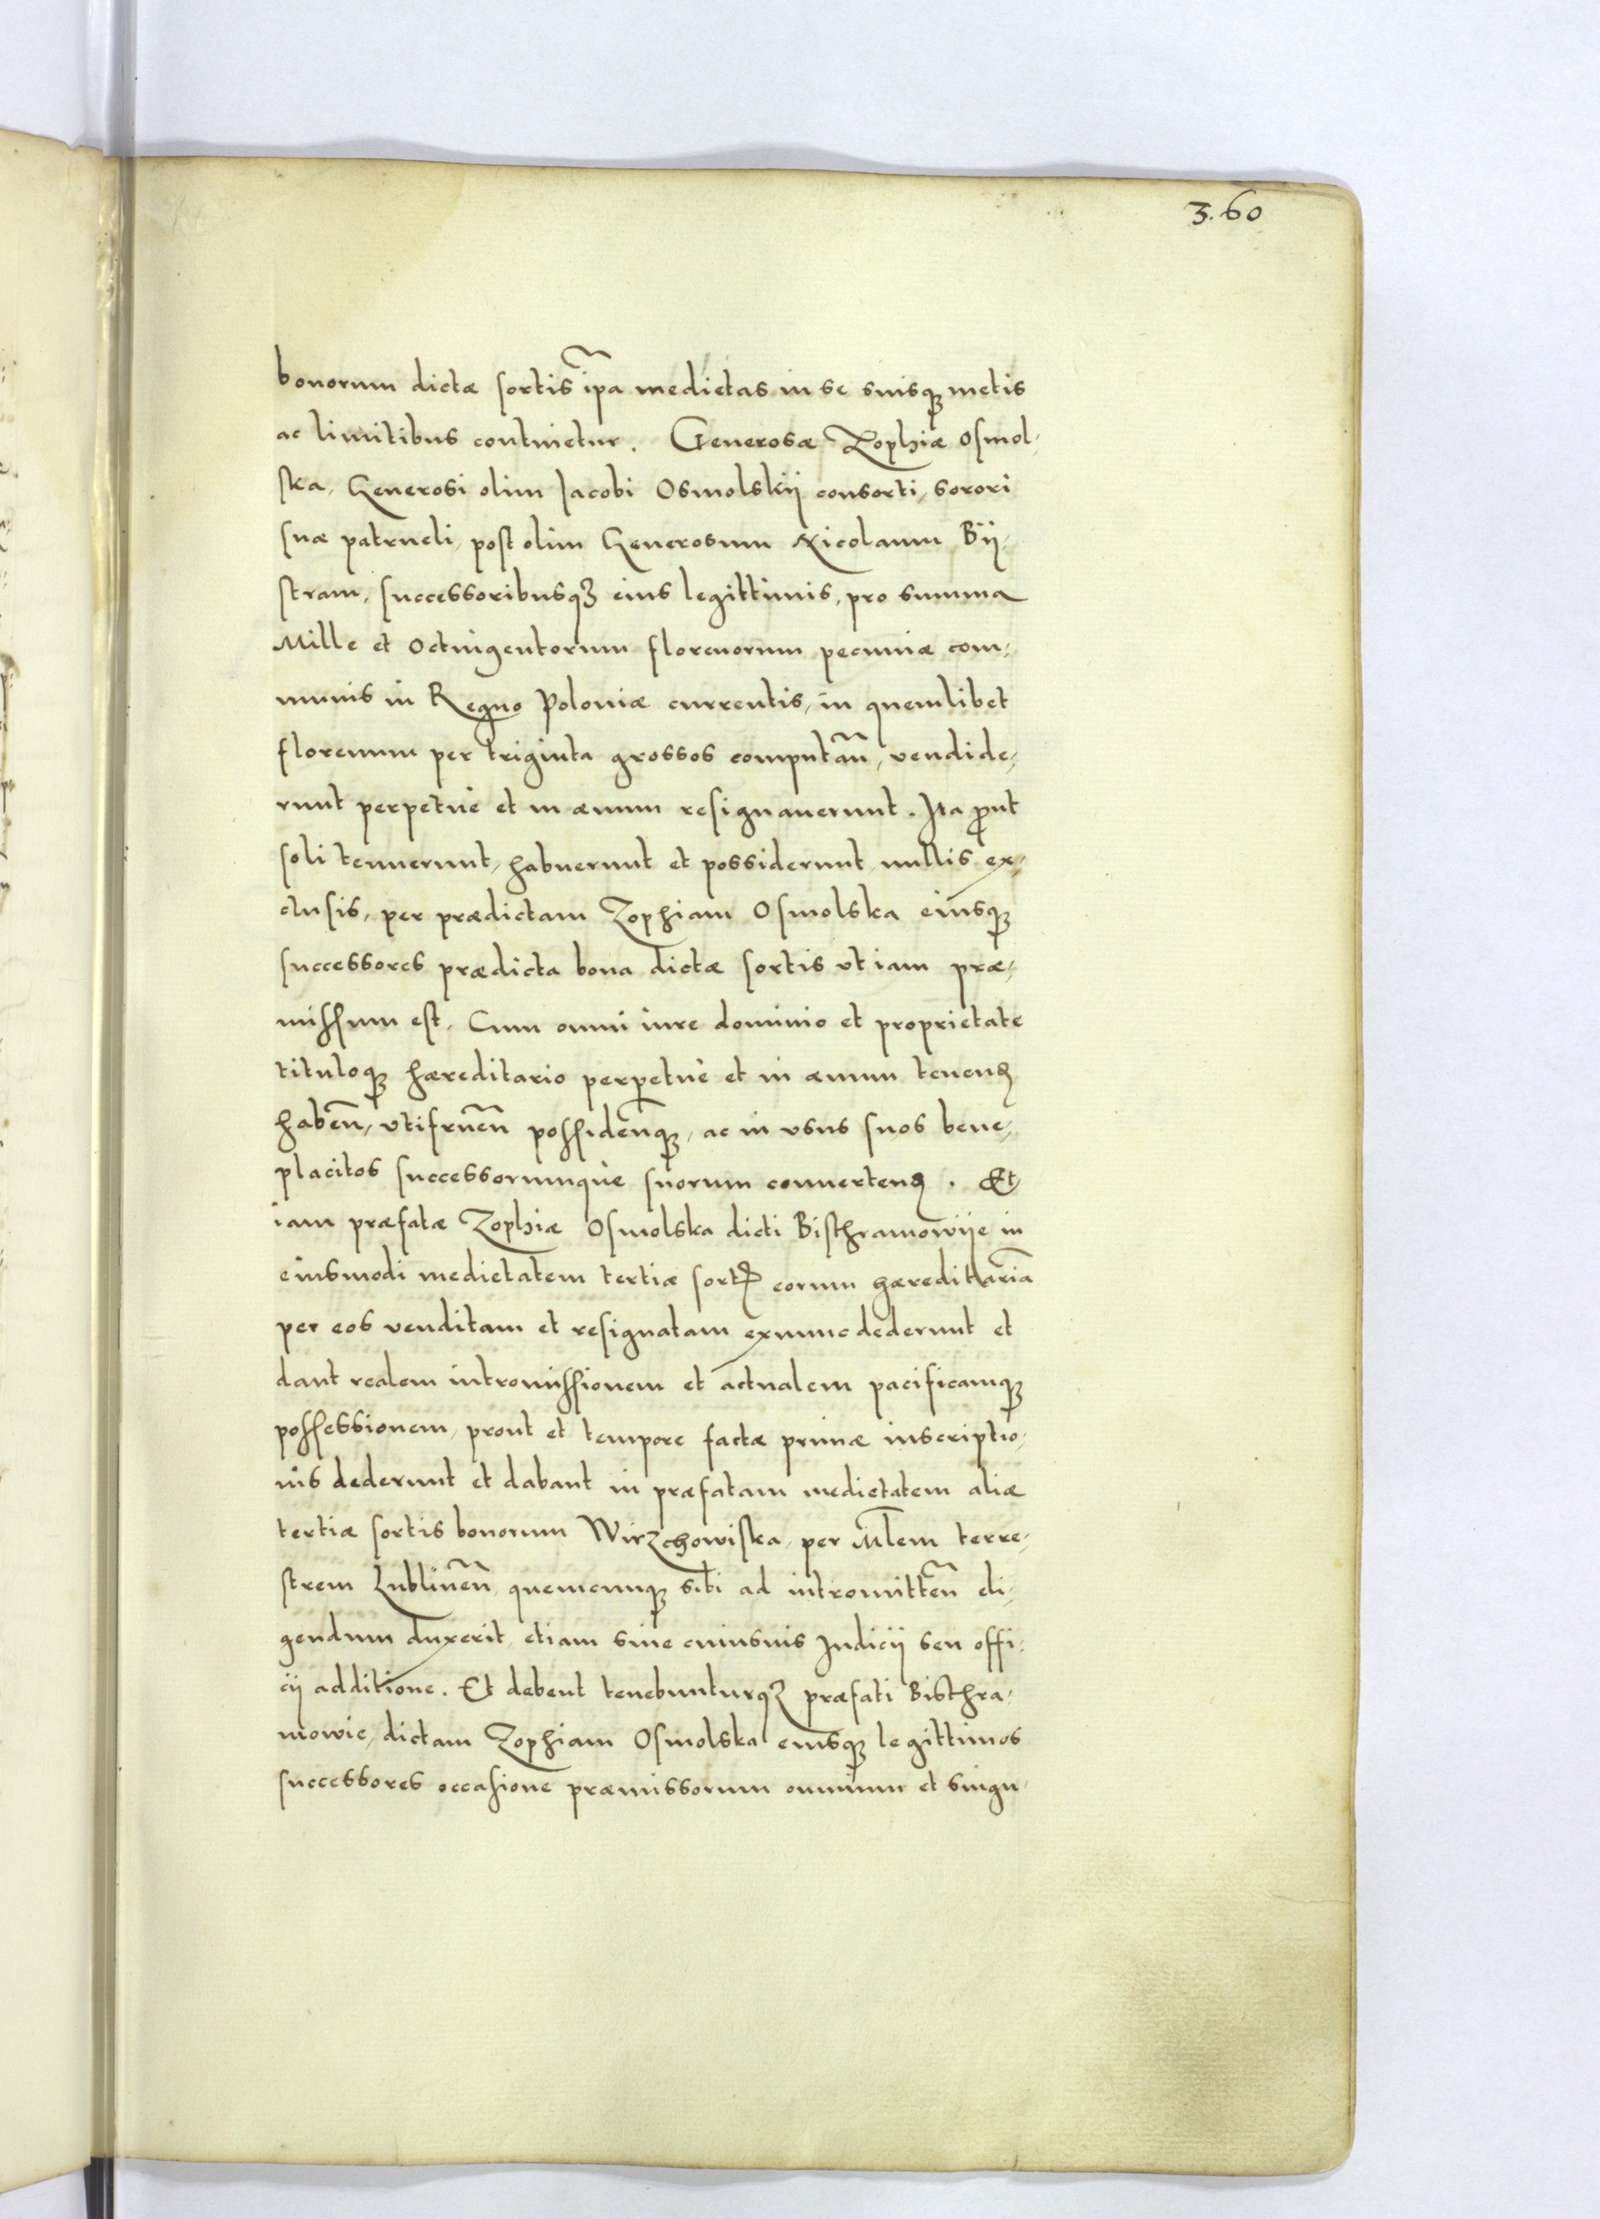 3.60
bonorum dictæ sortis ip̃a medietas in se suisq; metis
ac limitibus continetur. Generosæ Zophiæ Osmol-
ska, Generosi olim Jacobi Osmolskij consorti, sorori
suæ patrueli, post olim Generosum Nicolaum Bij-
stram, successoribusq; eius legittimis, pro summa
Mille et Octingentorum florenorum pecuniæ com-
munis in Regno Poloniæ currentis, in quemlibet
florenum per triginta grossos computañ, vendide-
runt perpetuè et in æuum resignauerunt. Ita ꝓut
soli tenuerunt, habuerunt et possiderunt nullis ex-
clusis, per prædictam Zophiam Osmolska eiusq;
successores prædicta bona dictæ sortis vt iam præ-
missum est, Cum omni iure dominio et proprietate
tituloq; hæreditario perpetuè et in æuum tenen̄
habeñ, vtifrueñ possideñq;, ac in vsus suos bene-
placitos successorumquè suorum conuerten̄. Et
iam præfatæ Zophiæ Osmolska dicti Bisthramowije in
eiusmodi medietatem tertiæ sort̄ eorum hæreditariã
per eos venditam et resignatam exnunc dederunt et
dant realem intromissionem et actualem pacificamq;
possessionem, prout et tempore factæ primæ inscriptio-
nis dederunt et dabant in præfatam medietatem aliæ
tertiæ sortis bonorum Wirzchowiska, per Mlem terre-
strem Lublineñ quemcunq; sibi ad intromitteñ eli-
gendum duxerit etiam sine cuiusuis Judicij seu offi-
cij additione. Et debent tenebunturq; præfati Bisthra-
mowie, dictam Zophiam Osmolska eiusq; legittimos
successores occasione præmissorum omnium et singu-